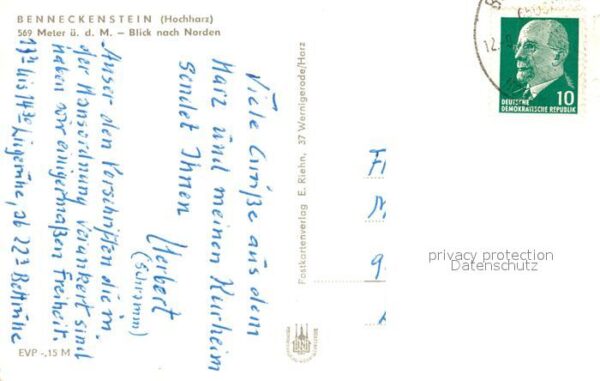 BENNECKENSTEIN (Hochharz)
569 Meter ü. d. M. – Blick nach Norden
Viele Grüße aus dem
Harz und meinen Kurheim
sendet Ihnen
Herbert
(Schramm)
Ausser den Vorschriften die in
der Hausordnung verankert sind
haben wir einigermaßen Freiheit.
bis Liegeruhe, ab 22 Bettruhe
EVP -,15 M
Postkartenverlag E. Riehn, 37 Wernigerode/Harz
12.
10
DEUTSCHE
DEMOKRATISCHE REPUBLIK
privacy protection
Datenschutz